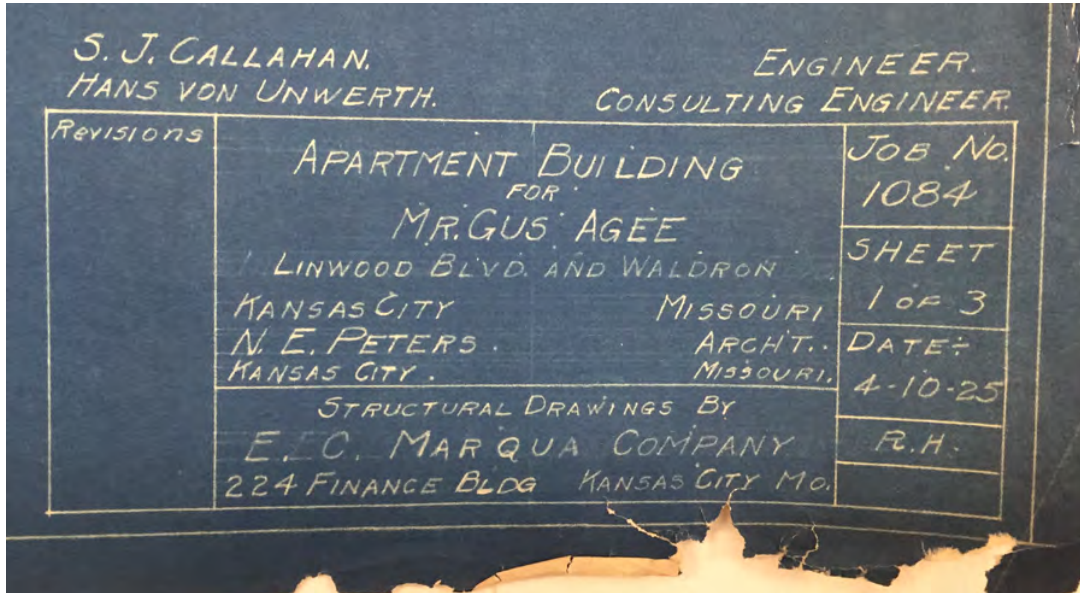 S. J. CALLAHAN. ENGINEER.
HANS VON UNWERTH. CONSULTING ENGINEER.
Revisions
APARTMENT BUILDING
FOR
MR. GUS AGEE
LINWOOD BLVD. AND WALDRON
KANSAS CITY MISSOURI
N. E. PETERS. ARCHT.
KANSAS CITY. MISSOURI.
STRUCTURAL DRAWINGS BY
E. C. MARQUA COMPANY
224 FINANCE BLDG KANSAS CITY MO.
JOB NO.
1084
SHEET
1 OF 3
DATE:
4-10-25
R.H.